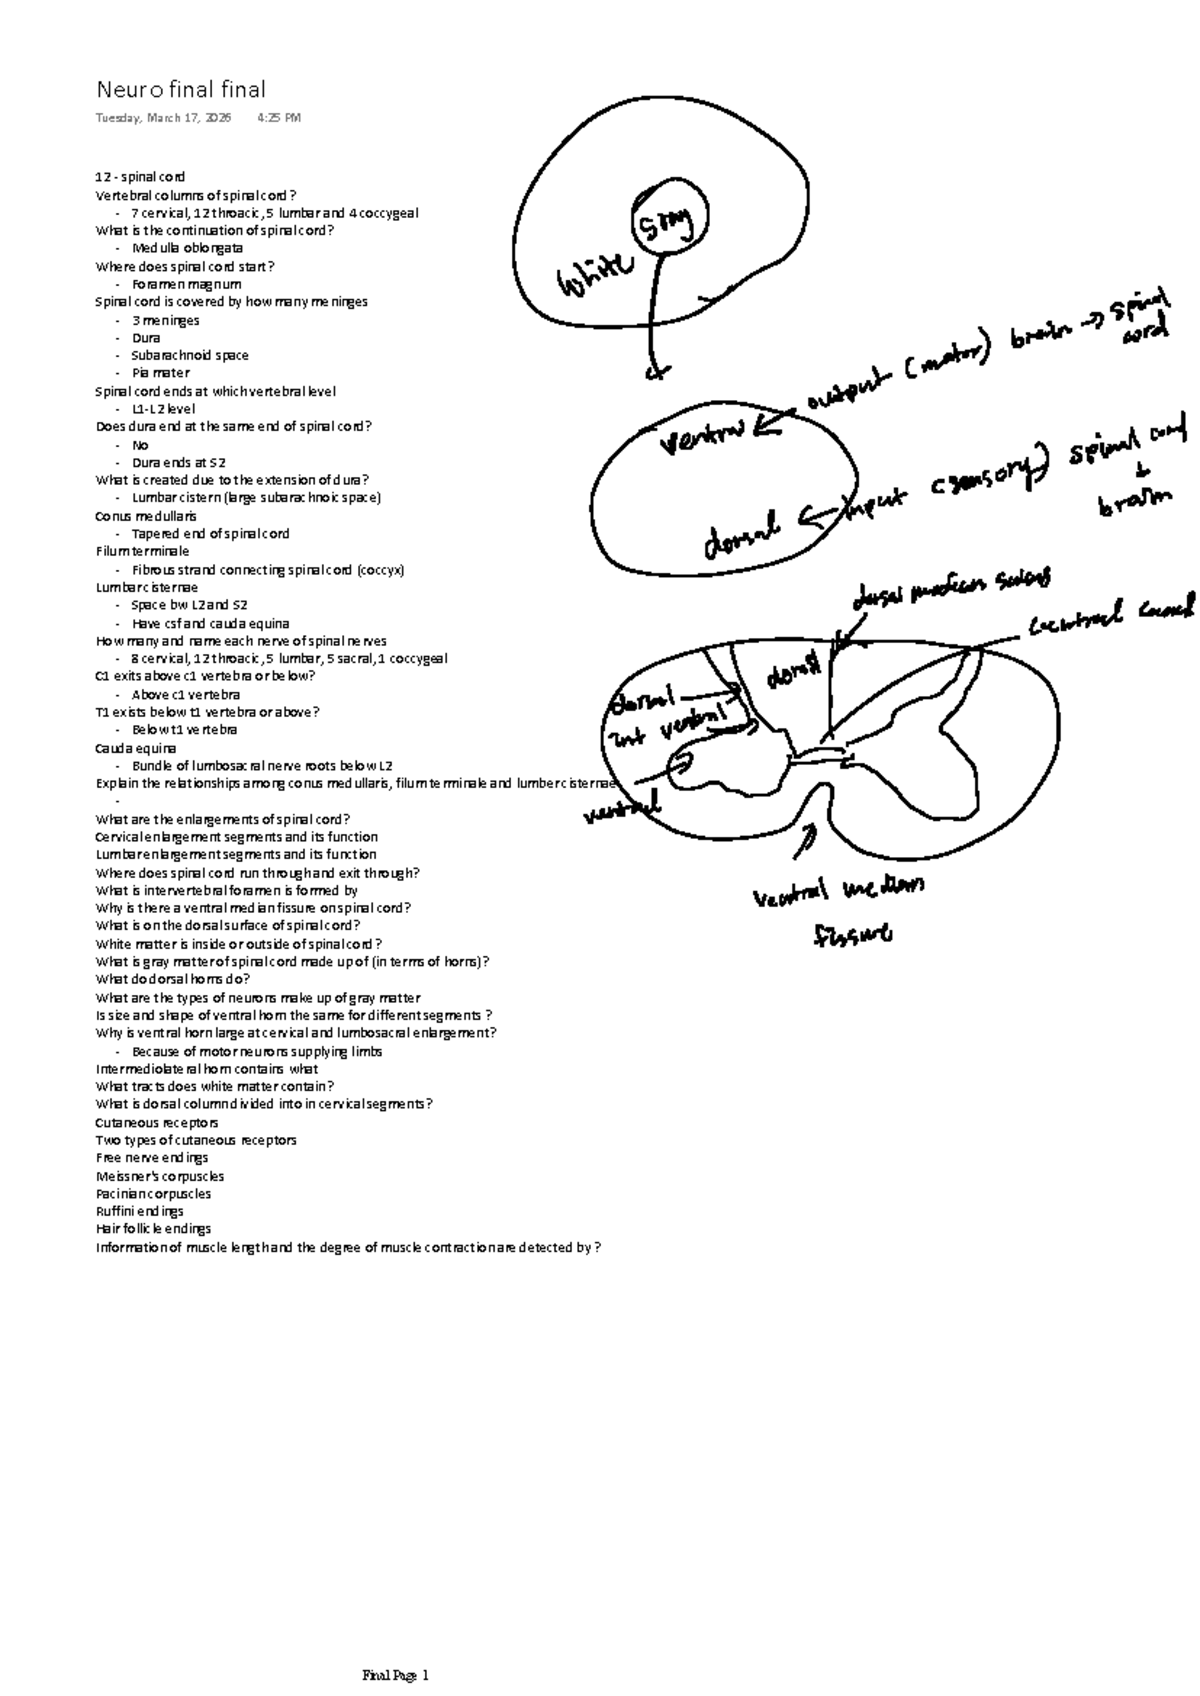 Neuro final final
Tuesday, March 17, 2026 4:25 PM
12 - spinal cord
Vertebral columns of spinal cord?
- 7 cervical, 12 throacic, 5 lumbar and 4 coccygeal
What is the continuation of spinal cord?
- Medulla oblongata
Where does spinal cord start?
- Foramen magnum
Spinal cord is covered by how many meninges
- 3 meninges
- Dura
- Subarachnoid space
- Pia mater
Spinal cord ends at which vertebral level
- L1-L2 level
Does dura end at the same end of spinal cord?
- No
- Dura ends at S2
What is created due to the extension of dura?
- Lumbar cistern (large subarachnoic space)
Conus medullaris
- Tapered end of spinal cord
Filum terminale
- Fibrous strand connecting spinal cord (coccyx)
Lumbar cisternae
- Space bw L2 and S2
- Have csf and cauda equina
How many and name each nerve of spinal nerves
- 8 cervical, 12 throacic, 5 lumbar, 5 sacral, 1 coccygeal
C1 exits above c1 vertebra or below?
- Above c1 vertebra
T1 exists below t1 vertebra or above?
- Below t1 vertebra
Cauda equina
- Bundle of lumbosacral nerve roots below L2
Explain the relationships among conus medullaris, filum terminale and lumber cisternae
-
What are the enlargements of spinal cord?
Cervical enlargement segments and its function
Lumbar enlargement segments and its function
Where does spinal cord run through and exit through?
What is intervertebral foramen is formed by
Why is there a ventral median fissure on spinal cord?
What is on the dorsal surface of spinal cord?
White matter is inside or outside of spinal cord?
What is gray matter of spinal cord made up of (in terms of horns)?
What do dorsal horns do?
What are the types of neurons make up of gray matter
Is size and shape of ventral horn the same for different segments ?
Why is ventral horn large at cervical and lumbosacral enlargement?
- Because of motor neurons supplying limbs
Intermediolateral horn contains what
What tracts does white matter contain?
What is dorsal column divided into in cervical segments?
Cutaneous receptors
Two types of cutaneous receptors
Free nerve endings
Meissner's corpuscles
Pacinian corpuscles
Ruffini endings
Hair follicle endings
Information of muscle length and the degree of muscle contraction are detected by ?
gray
white
output (motor) brain → spinal
cord
ventral
input (sensory) spinal cord
↓
brain
dorsal
dorsal median sulcus
central canal
dorsal
dorsal
int ventral
ventral
ventral median
fissure
Final Page 1